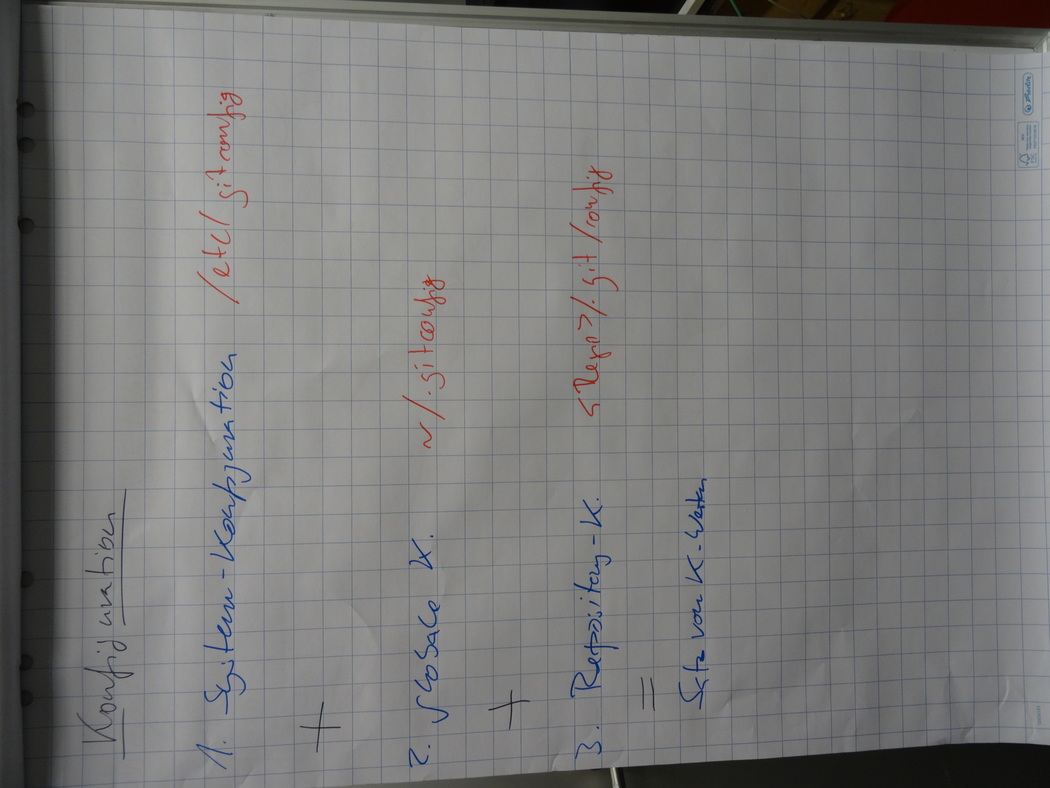 Konfiguration
1. System-Konfiguration /etc/gitconfig
+
2. globale K. ~/.gitconfig
+
3. Repository-K. <Repo>/.git/config
=
Satz von K-Werten
FSC
herlitz